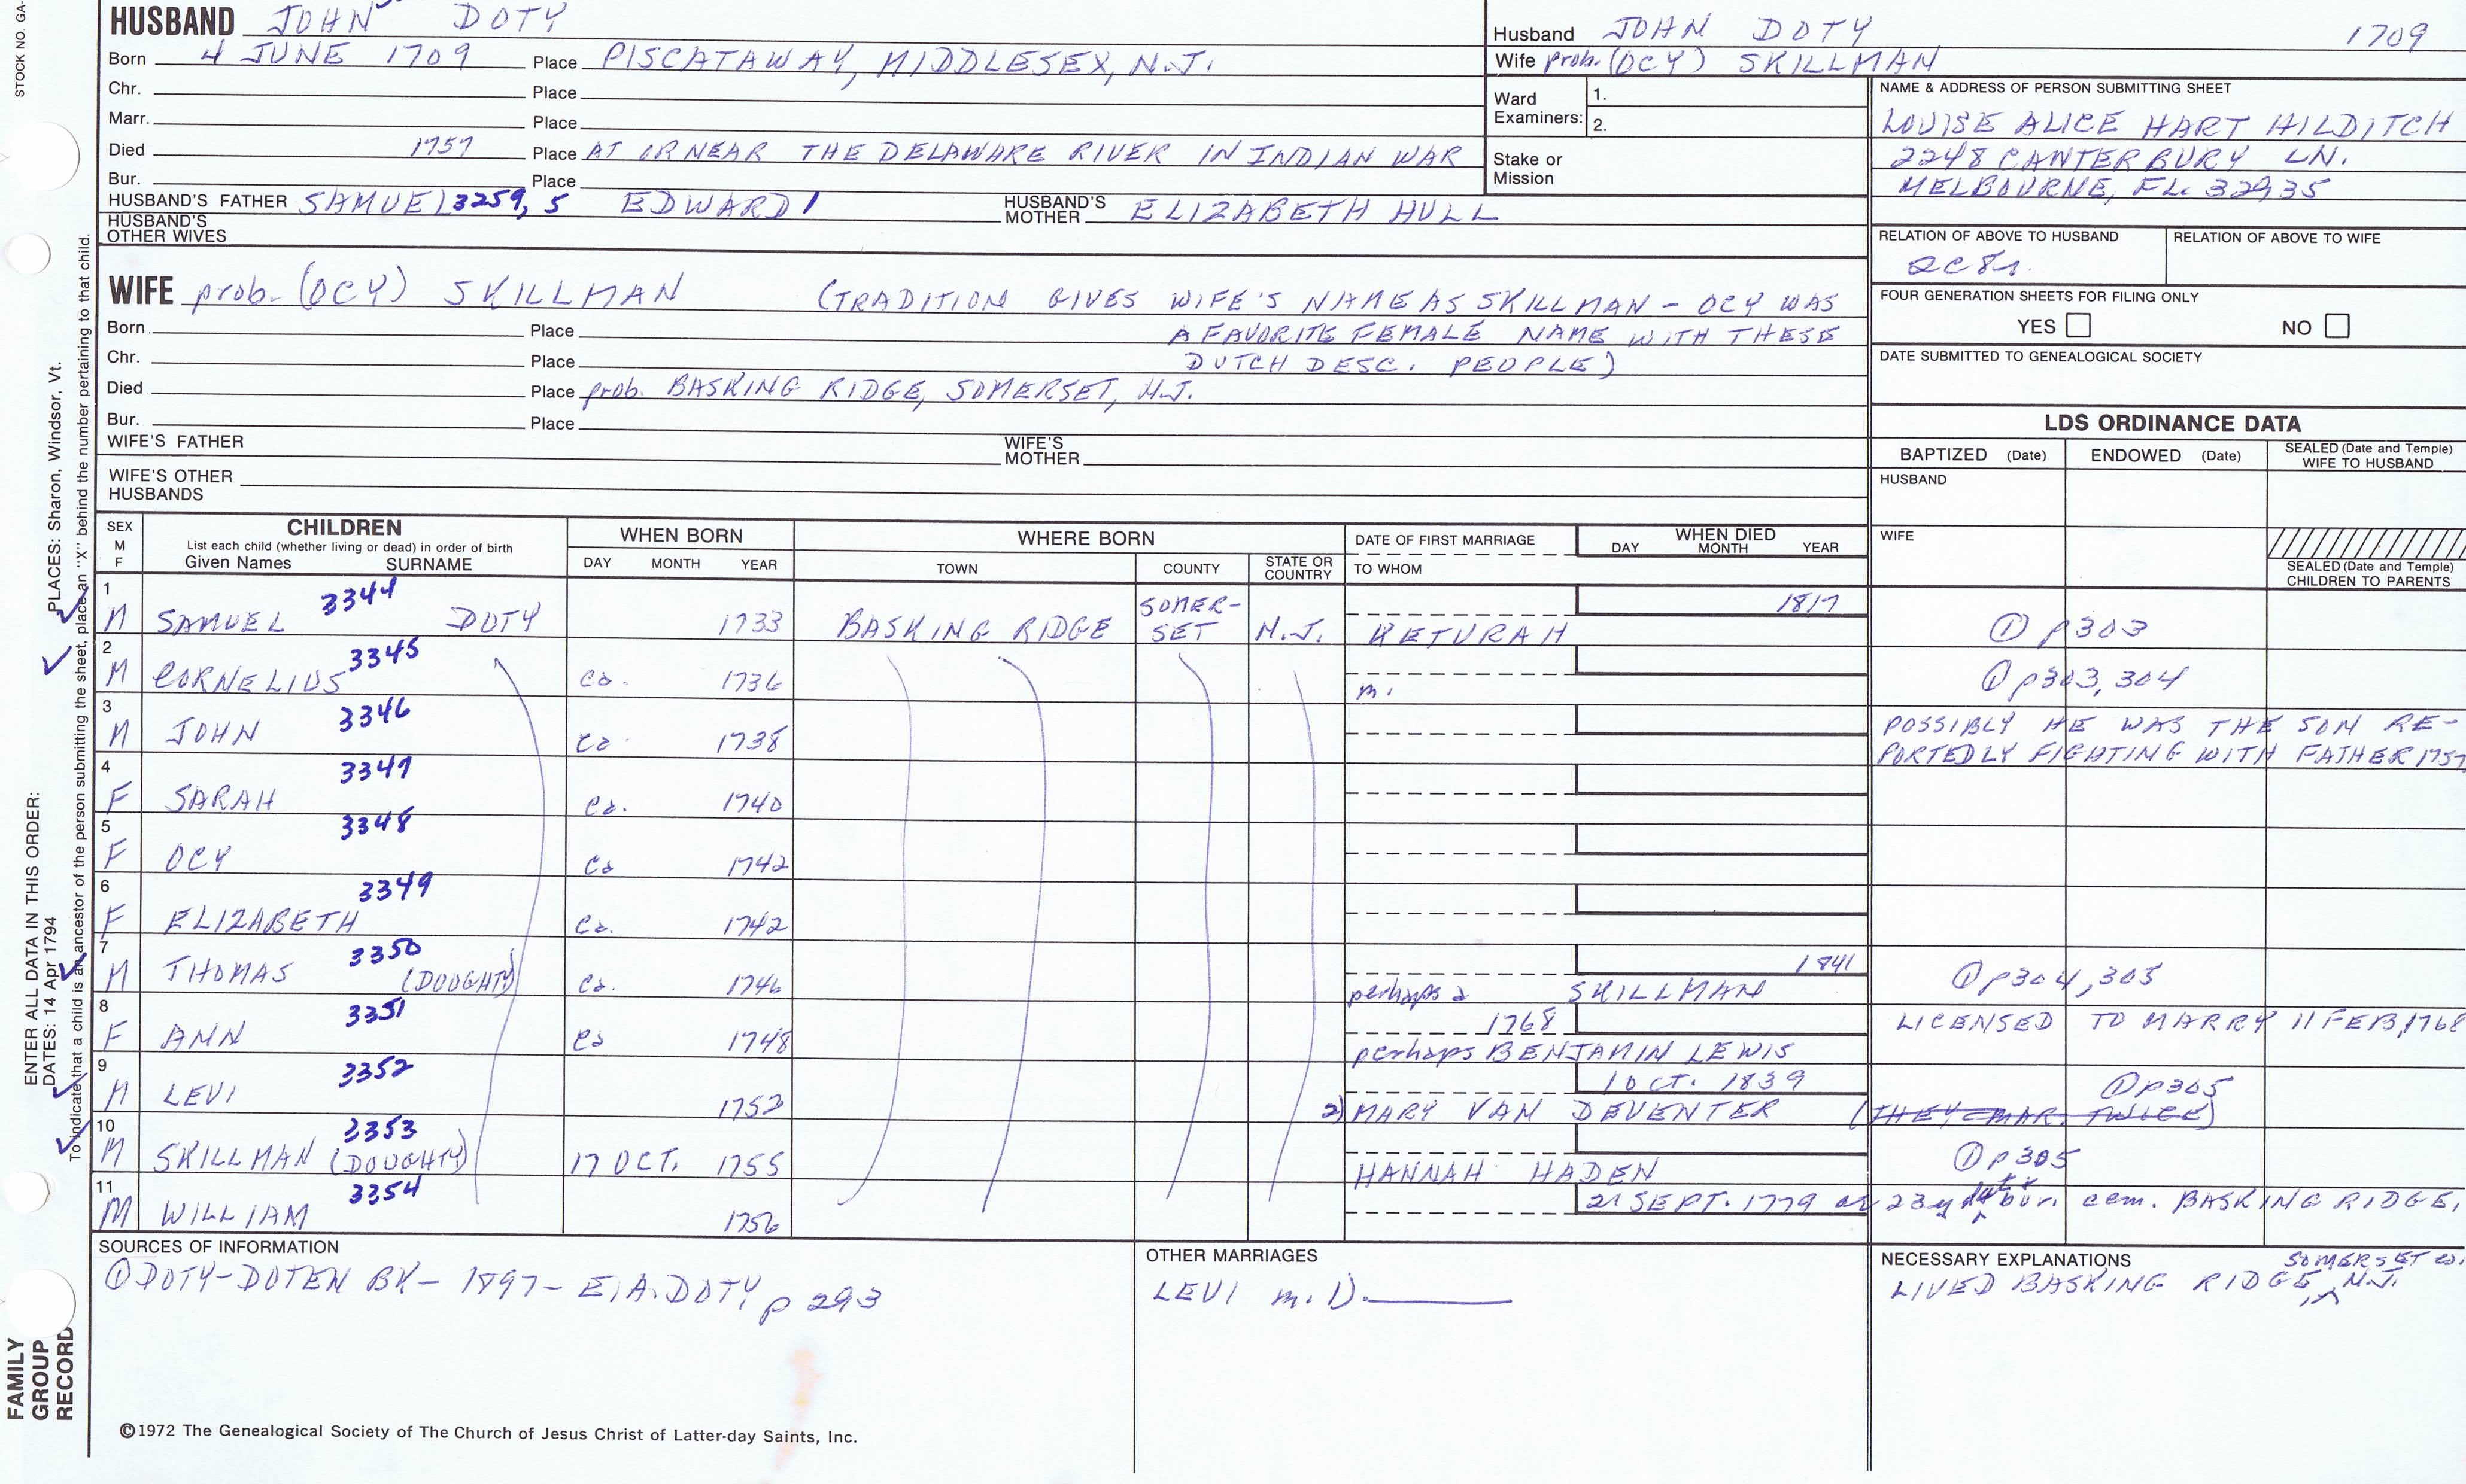 STOCK NO. GA-
HUSBAND JOHN DOTY
Born 4 JUNE 1709 Place PISCATAWAY, MIDDLESEX, N.J.
Chr. Place
Marr. Place
Died 1757 Place AT OR NEAR THE DELAWARE RIVER IN INDIAN WAR
Bur. Place
HUSBAND'S FATHER SAMUEL 3259, 5 EDWARD 1 HUSBAND'S MOTHER ELIZABETH HULL
HUSBAND'S OTHER WIVES
Husband JOHN DOTY 1709
Wife prob. (OCY) SKILLMAN
Ward Examiners: 1.
2.
Stake or Mission
NAME & ADDRESS OF PERSON SUBMITTING SHEET
LOUISE ALICE HART HILDITCH
2248 CANTERBURY LN.
MELBOURNE, FL. 32935
RELATION OF ABOVE TO HUSBAND RELATION OF ABOVE TO WIFE
FOUR GENERATION SHEETS FOR FILING ONLY
YES NO
DATE SUBMITTED TO GENEALOGICAL SOCIETY
WIFE prob. (OCY) SKILLMAN (TRADITION GIVES WIFE'S NAME AS SKILLMAN - OCY WAS
A FAVORITE FEMALE NAME WITH THESE
DUTCH DESC. PEOPLE)
Born Place
Chr. Place
Died Place prob. BASKING RIDGE, SOMERSET, N.J.
Bur. Place
WIFE'S FATHER WIFE'S MOTHER
WIFE'S OTHER HUSBANDS
LDS ORDINANCE DATA
BAPTIZED (Date) ENDOWED (Date) SEALED (Date and Temple) WIFE TO HUSBAND
HUSBAND
WIFE
SEALED (Date and Temple) CHILDREN TO PARENTS
SEX M F CHILDREN WHEN BORN WHERE BORN DATE OF FIRST MARRIAGE WHEN DIED
List each child (whether living or dead) in order of birth
Given Names SURNAME DAY MONTH YEAR TOWN COUNTY STATE OR COUNTRY TO WHOM DAY MONTH YEAR
1 M SAMUEL 3344 DOTY 1733 BASKING RIDGE SOMER-SET N.J. KETURAH 1817 ① p303
2 M CORNELIUS 3345 ca. 1736 m. ① p303, 304
3 M JOHN 3346 ca. 1738 POSSIBLY HE WAS THE SON RE-
PORTEDLY FIGHTING WITH FATHER 1757
4 F SARAH 3347 ca. 1740
5 F OCY 3348 ca 1742
6 F ELIZABETH 3349 ca. 1742
7 M THOMAS 3350 (DOUGHTY) ca. 1746 perhaps a SKILLMAN 1841 ① p304, 305
8 F ANN 3351 ca 1748 1768 perhaps BENJAMIN LEWIS LICENSED TO MARRY 11 FEB, 1768
9 M LEVI 3352 1752 2) MARY VAN DEVENTER 1 OCT. 1839 ① p305
(THEY MAR. TWICE)
10 M SKILLMAN (DOUGHTY) 3353 17 OCT. 1755 HANNAH HADEN ① p305
11 M WILLIAM 3354 1756 21 SEPT. 1779 23y bur. cem. BASKING RIDGE,
SOMERSET CO.
SOURCES OF INFORMATION
① DOTY-DOTEN BK - 1897 - E.A. DOTY, p 293
OTHER MARRIAGES
LEVI m. 1)
NECESSARY EXPLANATIONS
LIVED BASKING RIDGE, N.J.
©1972 The Genealogical Society of The Church of Jesus Christ of Latter-day Saints, Inc.
FAMILY GROUP RECORD
ENTER ALL DATA IN THIS ORDER:
DATES: 14 Apr 1794 PLACES: Sharon, Windsor, Vt.
To indicate that a child is an ancestor of the person submitting the sheet, place an "X" behind the number pertaining to that child.